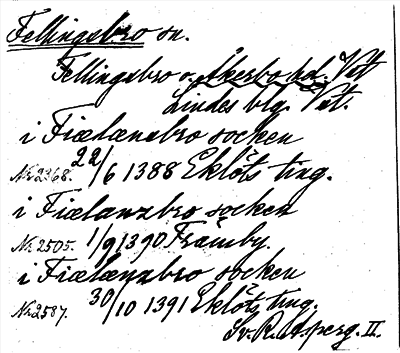 Fellingsbro sn.
Fellingsbro s. Åkerbo hd. Vst
Lindes blg. Vst.
i Fiælænzbro socken
Nr 2368. 22/6 1388 Eklöts ting.
i Fiælanzbro socken
Nr 2505. 1/9 1390 Främby.
i Fiælænzbro socken
Nr 2587. 30/10 1391 Eklöts ting.
Sv. R. A. perg. II.